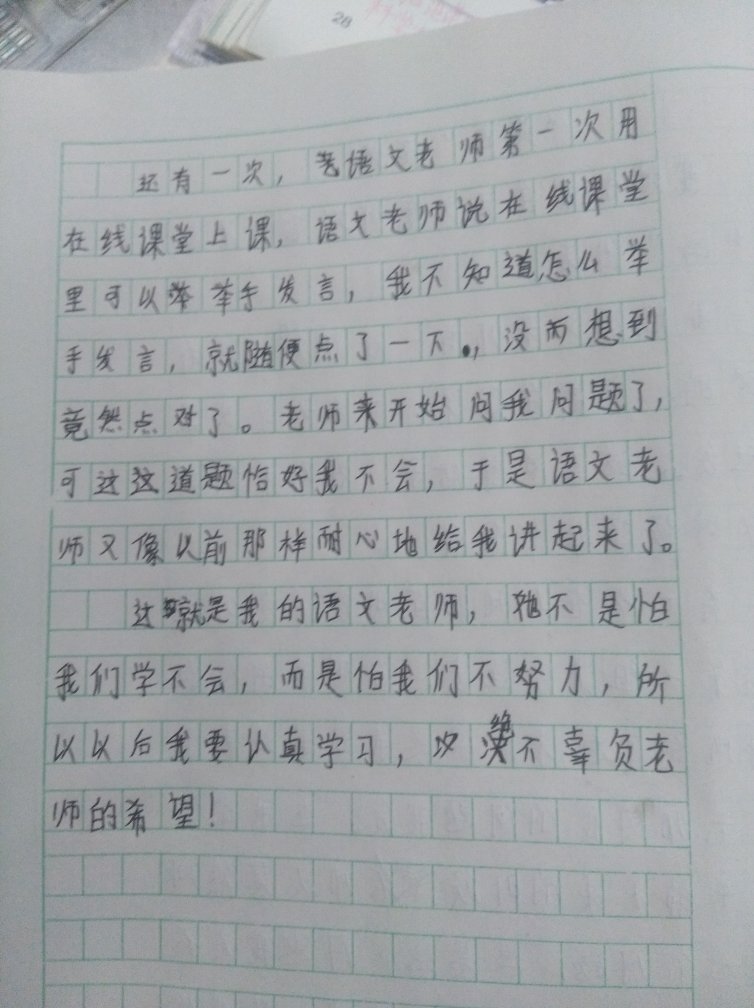 28
还有一次，老语文老师第一次用
在线课堂上课，语文老师说在线课堂
里可以举举手发言，我不知道怎么举
手发言，就随便点了一下，没而想到
竟然点对了。老师来开始问我问题了，
可这这道题恰好我不会，于是语文老
师又像以前那样耐心地给我讲起来了。
这就是我的语文老师，她不是怕
我们学不会，而是怕我们不努力，所
以以后我要认真学习，绝不辜负老
师的希望！